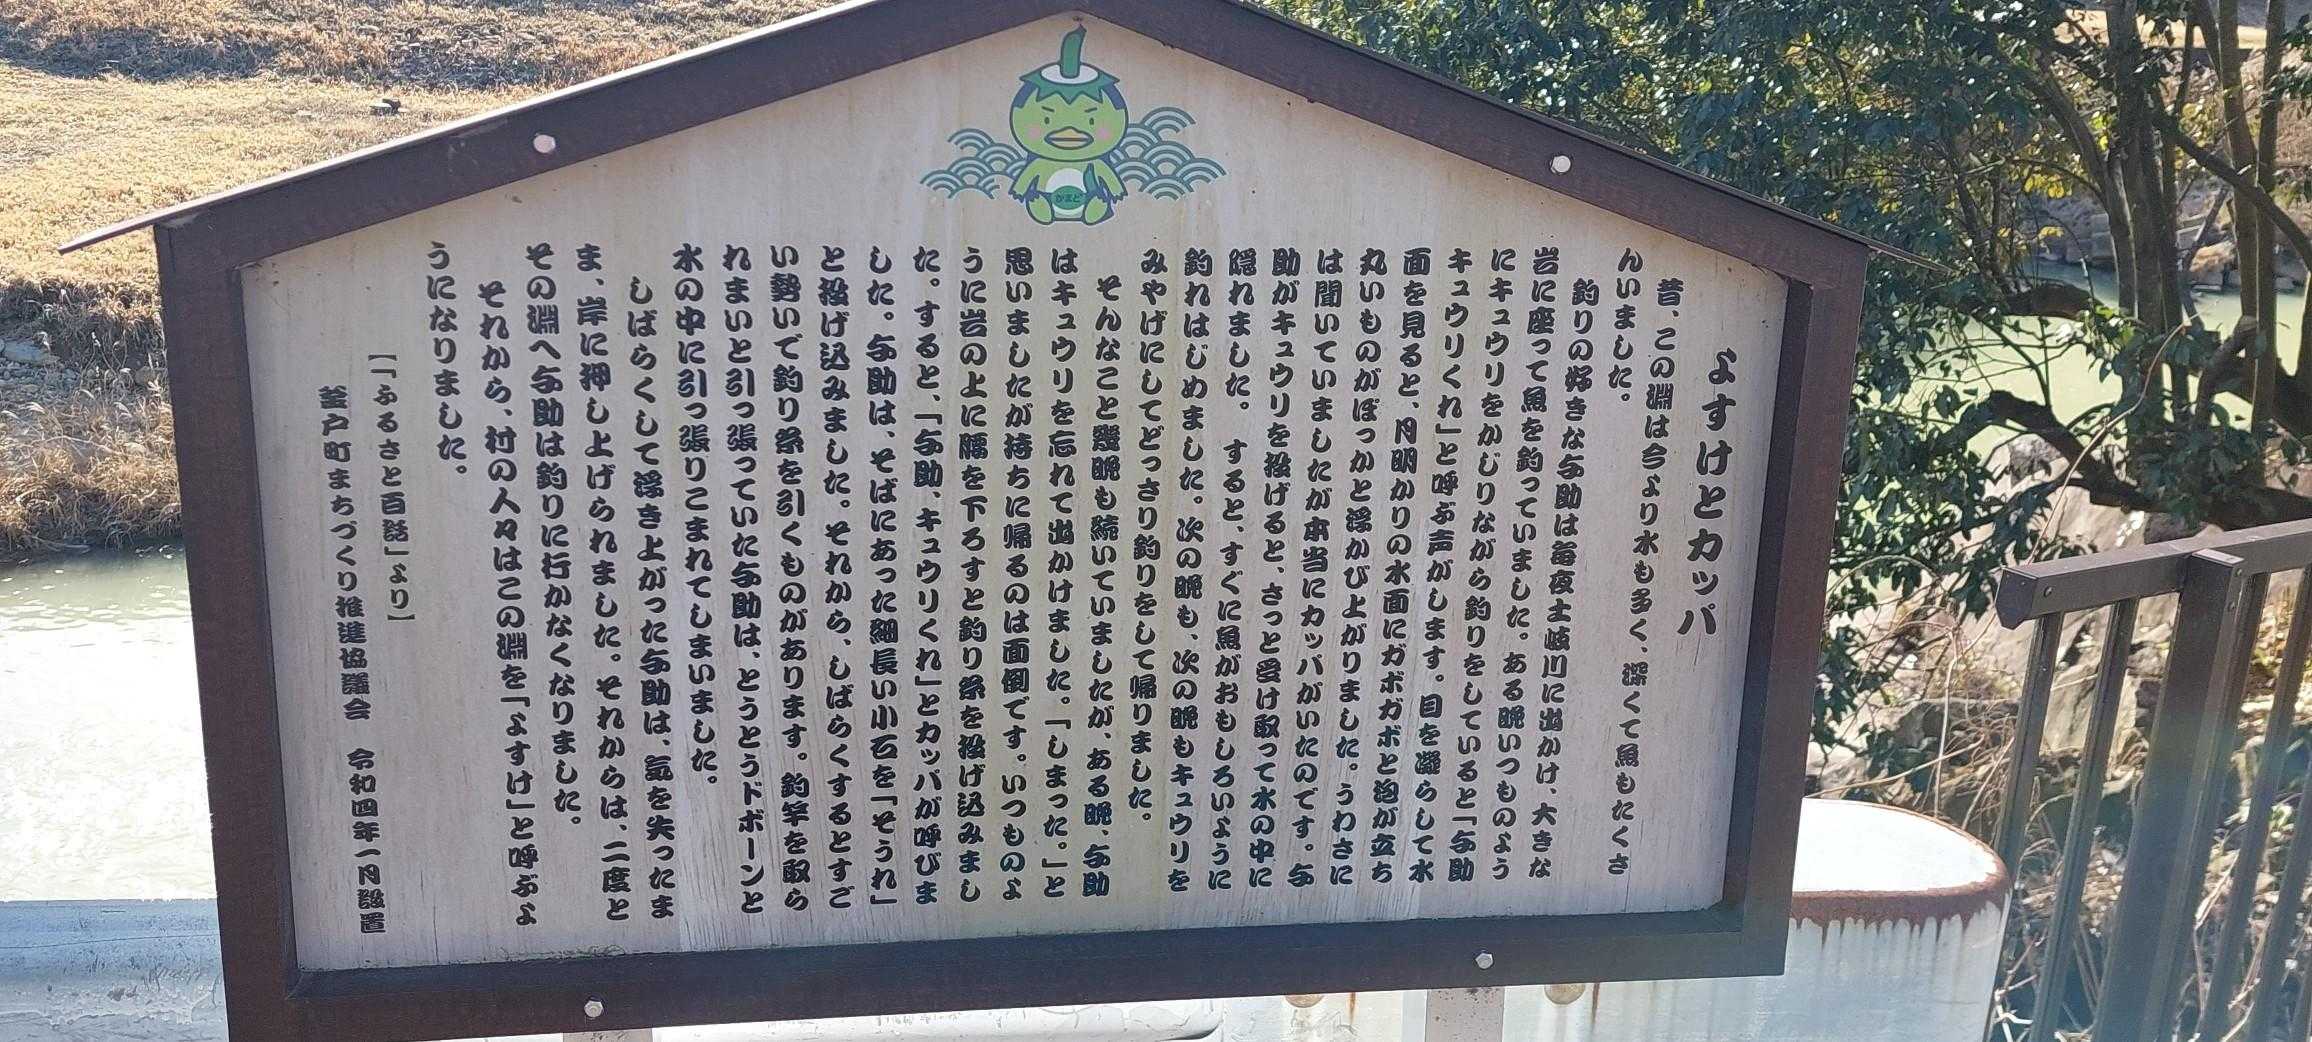 よすけとカッパ
昔、この淵は今より水も多く、深くて魚もたくさ
んいました。
釣りの好きな与助は毎夜土岐川に出かけ、大きな
岩に座って魚を釣っていました。ある晩いつものよう
にキュウリをかじりながら釣りをしていると「与助
キュウリくれ」と呼ぶ声がします。目を凝らして水
面を見ると、月明かりの水面にガボガボと泡が立ち
丸いものがぽっかと浮かび上がりました。うわさに
は聞いていましたが本当にカッパがいたのです。与
助がキュウリを投げると、さっと受け取って水の中に
隠れました。 すると、すぐに魚がおもしろいように
釣れはじめました。次の晩も、次の晩もキュウリを
みやげにしてどっさり釣りをして帰りました。
そんなこと幾晩も続いていましたが、ある晩、与助
はキュウリを忘れて出かけました。「しまった。」と
思いましたが持ちに帰るのは面倒です。いつものよ
うに岩の上に腰を下ろすと釣り糸を投げ込みまし
た。すると、「与助、キュウリくれ」とカッパが呼びま
した。与助は、そばにあった細長い小石を「そうれ」
と投げ込みました。それから、しばらくするとすご
い勢いで釣り糸を引くものがあります。釣竿を取ら
れまいと引っ張っていた与助は、とうとうドボーンと
水の中に引っ張りこまれてしまいました。
しばらくして浮き上がった与助は、気を失ったま
ま、岸に押し上げられました。それからは、二度と
その淵へ与助は釣りに行かなくなりました。
それから、村の人々はこの淵を「よすけ」と呼ぶよ
うになりました。
【「ふるさと百話」より】
釜戸町まちづくり推進協議会 令和四年一月設置
かまど